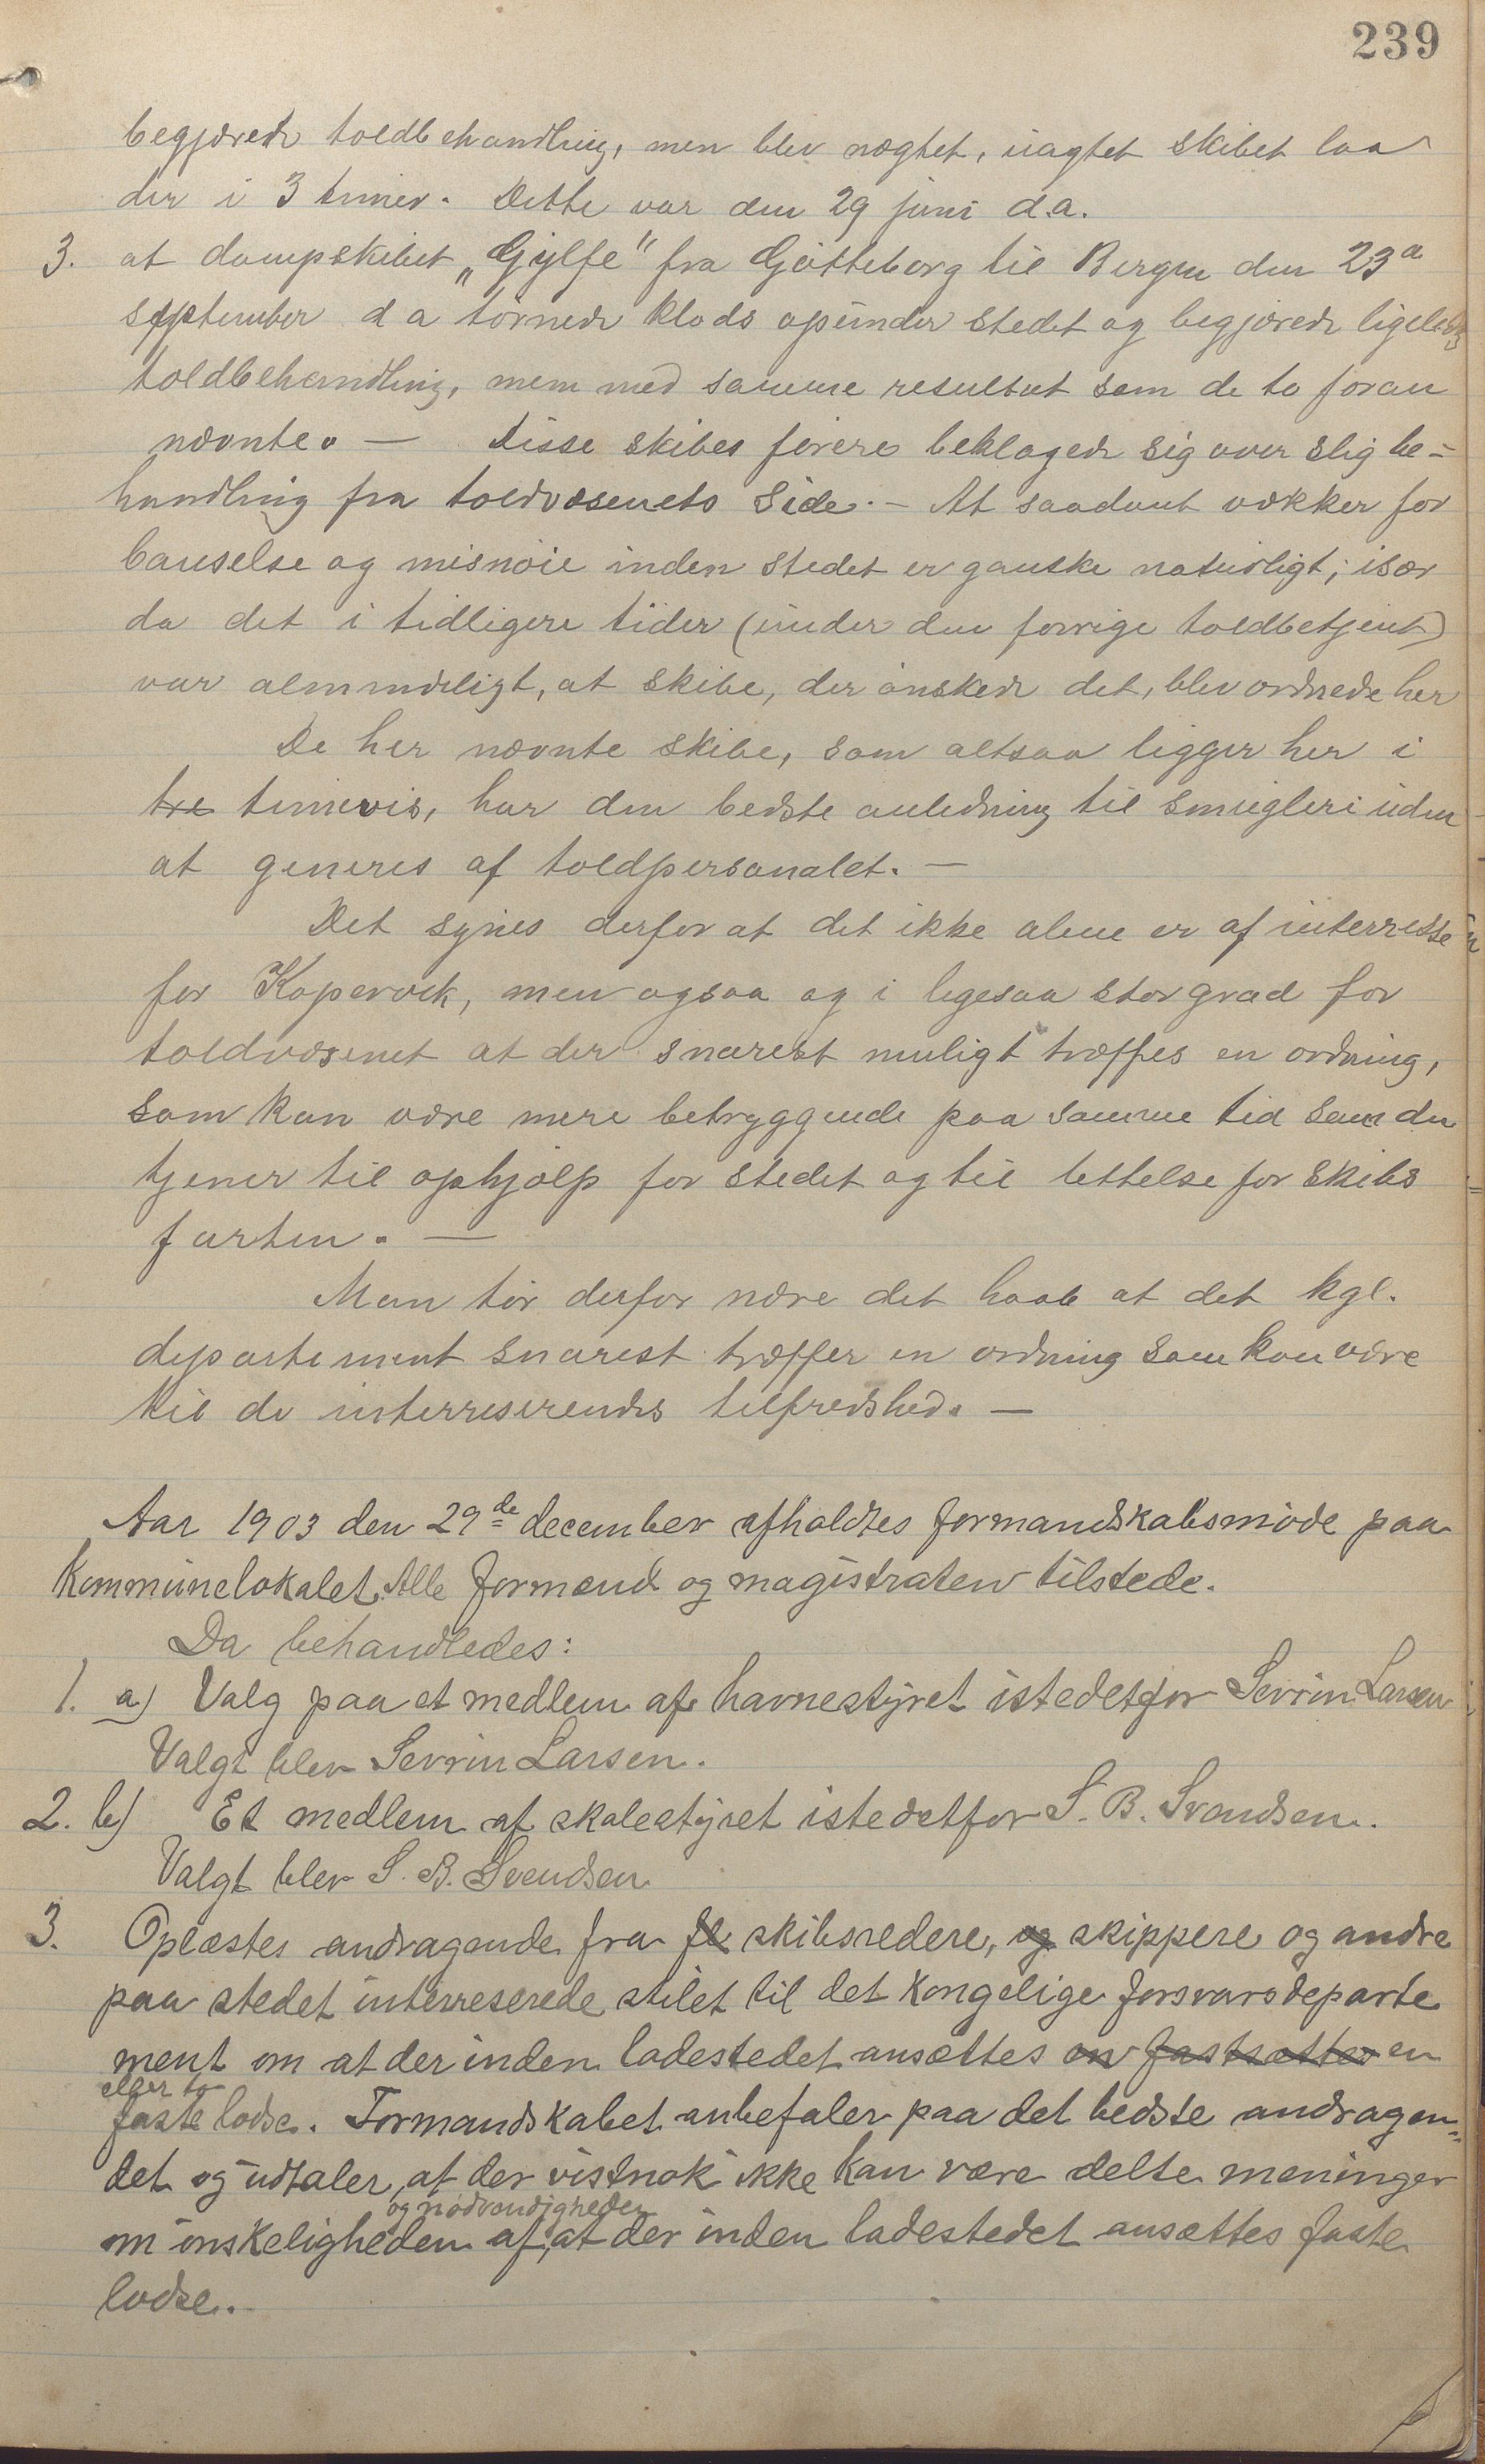 239
begjærede toldbehandling, men blev nægtet, uagtet skibet laa
der i 3 timer. Dette var den 29 juni d.a.
3. at dampskibet „Gylfe" fra Gøtteborg til Bergen den 23a
september d a tørnede klods opunder stedet og begjærede ligeledes
toldbehandling, men med samme resultat som de to foran
nævnte. — Disse skibes førere beklagede sig over slig be=
handling fra toldvæsenets side. — At saadant vækker for
bauselse og misnøie inden stedet er ganske naturligt; især
da det i tidligere tider (under den forrige toldbetjent)
var almindeligt, at skibe, der ønskede det, blev ordnede her
De her nævnte skibe, som altsaa ligger her i
tre timevis, har den bedste anledning til smugleri uden
at generes af toldpersonalet. —
Det synes derfor at det ikke alene er af interresse
for Kopervik, men ogsaa og i ligesaa stor grad for
toldvæsenet at der snarest muligt træffes en ordning,
som kan være mere betryggende paa samme tid som den
tjener til ophjælp for stedet og til lettelse for skibs
farten. —
Man tør derfor nære det haab at det kgl.
departement snarest træffer en ordning som kan være
til de interreserendes tilfredshed. —
Aar 1903 den 29de december afholdtes formandskabsmøde paa
Kommunelokalet. Alle formænd og magistraten tilstede.
Da behandledes:
1. a) Valg paa et medlem af havnestyret istedetfor Sevrin Larsen
Valgt blev Sevrin Larsen.
2. b) Et medlem af skolestyret istedetfor S. B. Svendsen.
Valgt blev S. B. Svendsen
3. Oplæstes andragende fra fl skibsredere, og skippere og andre
paa stedet interreserede stilet til det kongelige forsvarsdeparte
ment om at der inden ladestedet ansættes en fastsatter en
eller to
faste lodse. Formandskabet anbefaler paa det bedste andragen=
det og udtaler, at der vistnok ikke kan være delte meninger
og nødvendigheden
om ønskeligheden af, at der inden ladestedet ansættes faste
lodse.